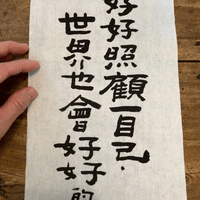 好好照顧自己.
世界也會好好的